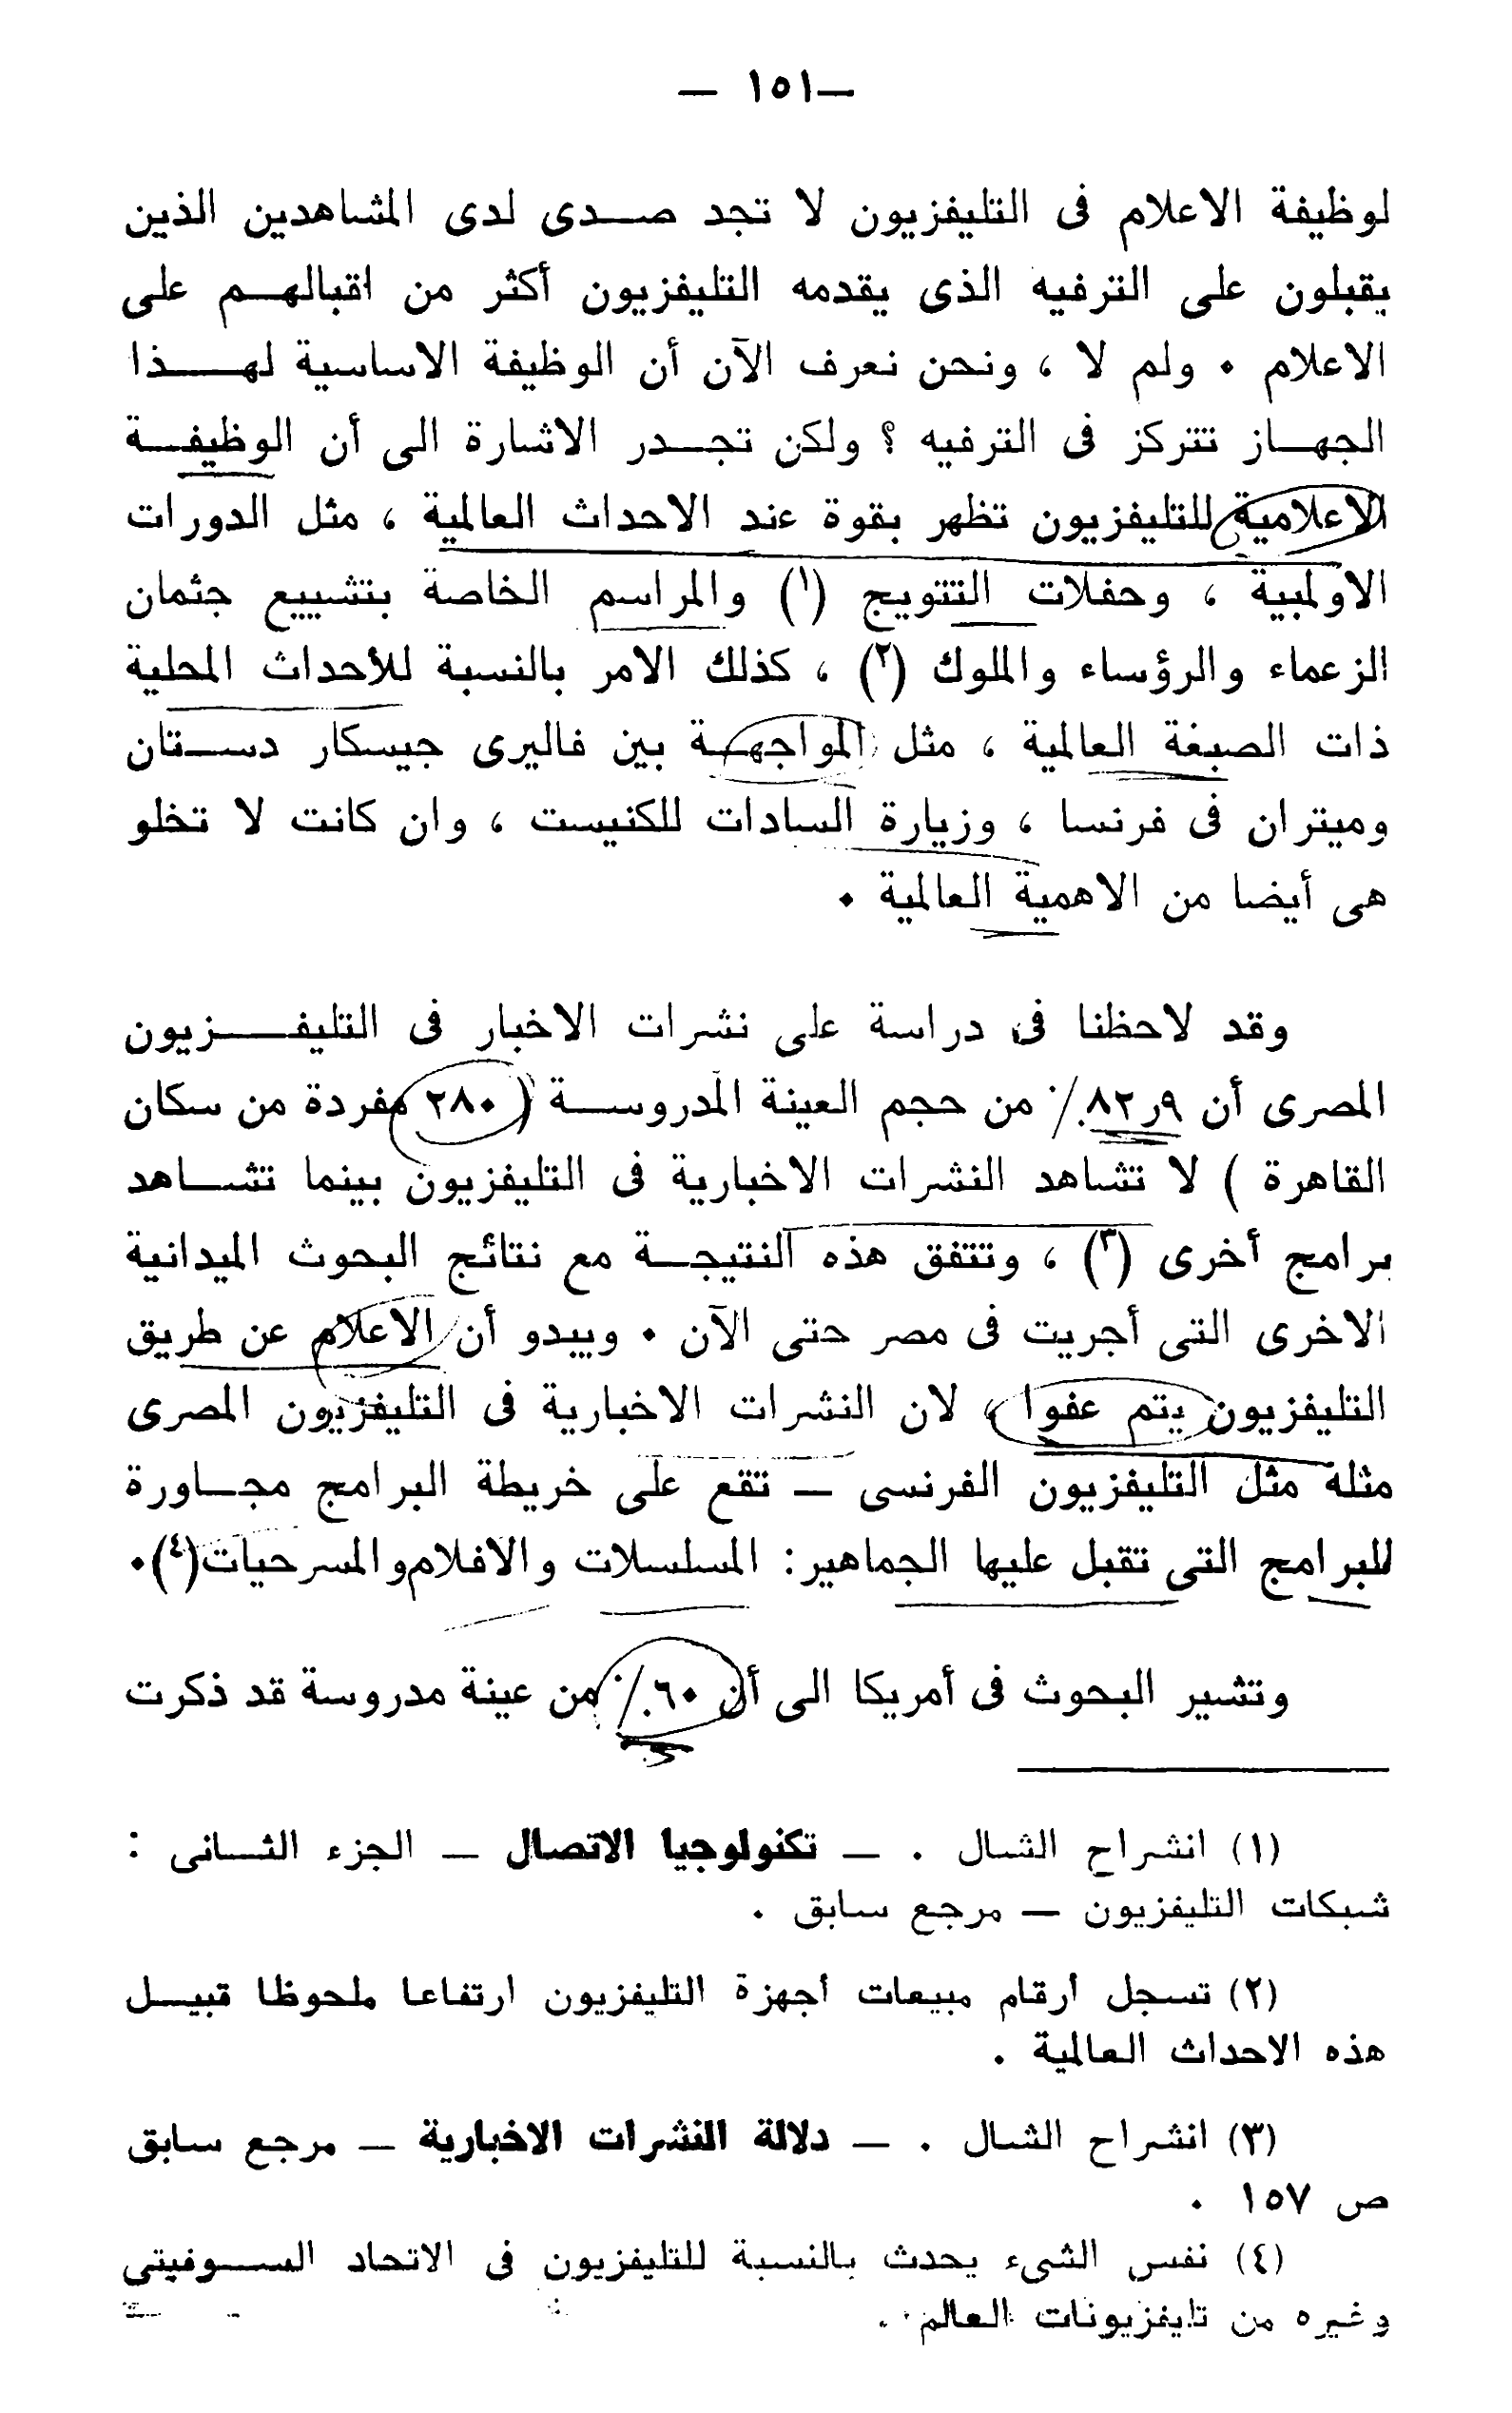 — ١٥١ —
لوظيفة الاعلام فى التليفزيون لا تجد صدى لدى المشاهدين الذين
يقبلون على الترفيه الذى يقدمه التليفزيون أكثر من اقبالهم على
الاعلام ٠ ولم لا ، ونحن نعرف الآن أن الوظيفة الاساسية لهذا
الجهاز تتركز فى الترفيه ؟ ولكن تجدر الاشارة الى أن الوظيفة
الاعلامية للتليفزيون تظهر بقوة عند الاحداث العالمية ، مثل الدورات
الاولمبية ، وحفلات التتويج (١) والمراسم الخاصة بتشييع جثمان
الزعماء والرؤساء والملوك (٢) ، كذلك الامر بالنسبة للأحداث المحلية
ذات الصبغة العالمية ، مثل المواجهة بين فاليرى جيسكار دستان
وميتران فى فرنسا ، وزيارة السادات للكنيست ، وان كانت لا تخلو
هى أيضا من الاهمية العالمية ٠
وقد لاحظنا فى دراسة على نشرات الاخبار فى التليفزيون
المصرى أن ٨٢٫٩٪ من حجم العينة المدروسة ( ٢٨٠ مفردة من سكان
القاهرة ) لا تشاهد النشرات الاخبارية فى التليفزيون بينما تشاهد
برامج أخرى (٣) ، وتتفق هذه النتيجة مع نتائج البحوث الميدانية
الاخرى التى أجريت فى مصر حتى الآن ٠ ويبدو أن الاعلام عن طريق
التليفزيون يتم عفوا ، لان النشرات الاخبارية فى التليفزيون المصرى
مثله مثل التليفزيون الفرنسى — تقع على خريطة البرامج مجاورة
للبرامج التى تقبل عليها الجماهير: المسلسلات والافلام والمسرحيات(٤)٠
وتشير البحوث فى أمريكا الى أن ٦٠٪ من عينة مدروسة قد ذكرت
(١) انشراح الشال . — تكنولوجيا الاتصال — الجزء الثانى :
شبكات التليفزيون — مرجع سابق .
(٢) تسجل أرقام مبيعات أجهزة التليفزيون ارتفاعا ملحوظا قبيل
هذه الاحداث العالمية .
(٣) انشراح الشال . — دلالة النشرات الاخبارية — مرجع سابق
ص ١٥٧ .
(٤) نفس الشىء يحدث بالنسبة للتليفزيون فى الاتحاد السوفيتى
وغيره من تليفزيونات العالم .